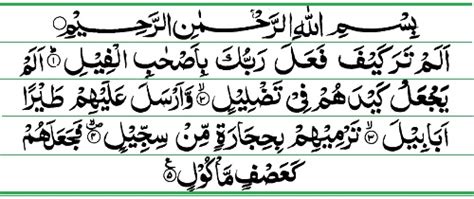 بِسْمِ اللهِ الرَّحْمٰنِ الرَّحِيْمِ
اَلَمْ تَرَ كَيْفَ فَعَلَ رَبُّكَ بِاَصْحٰبِ الْفِيْلِ ۝۱ اَلَمْ
يَجْعَلْ كَيْدَهُمْ فِىْ تَضْلِيْلٍ ۝۲ وَّاَرْسَلَ عَلَيْهِمْ طَيْرًا
اَبَابِيْلَ ۝۳ تَرْمِيْهِمْ بِحِجَارَةٍ مِّنْ سِجِّيْلٍ ۝۴ فَجَعَلَهُمْ
كَعَصْفٍ مَّاْكُوْلٍ ۝۵